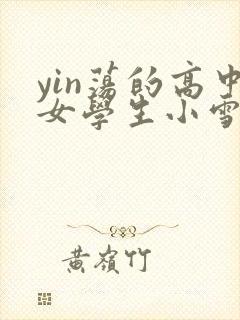 yin蕩的高中
女學生小雪
黃嶺竹